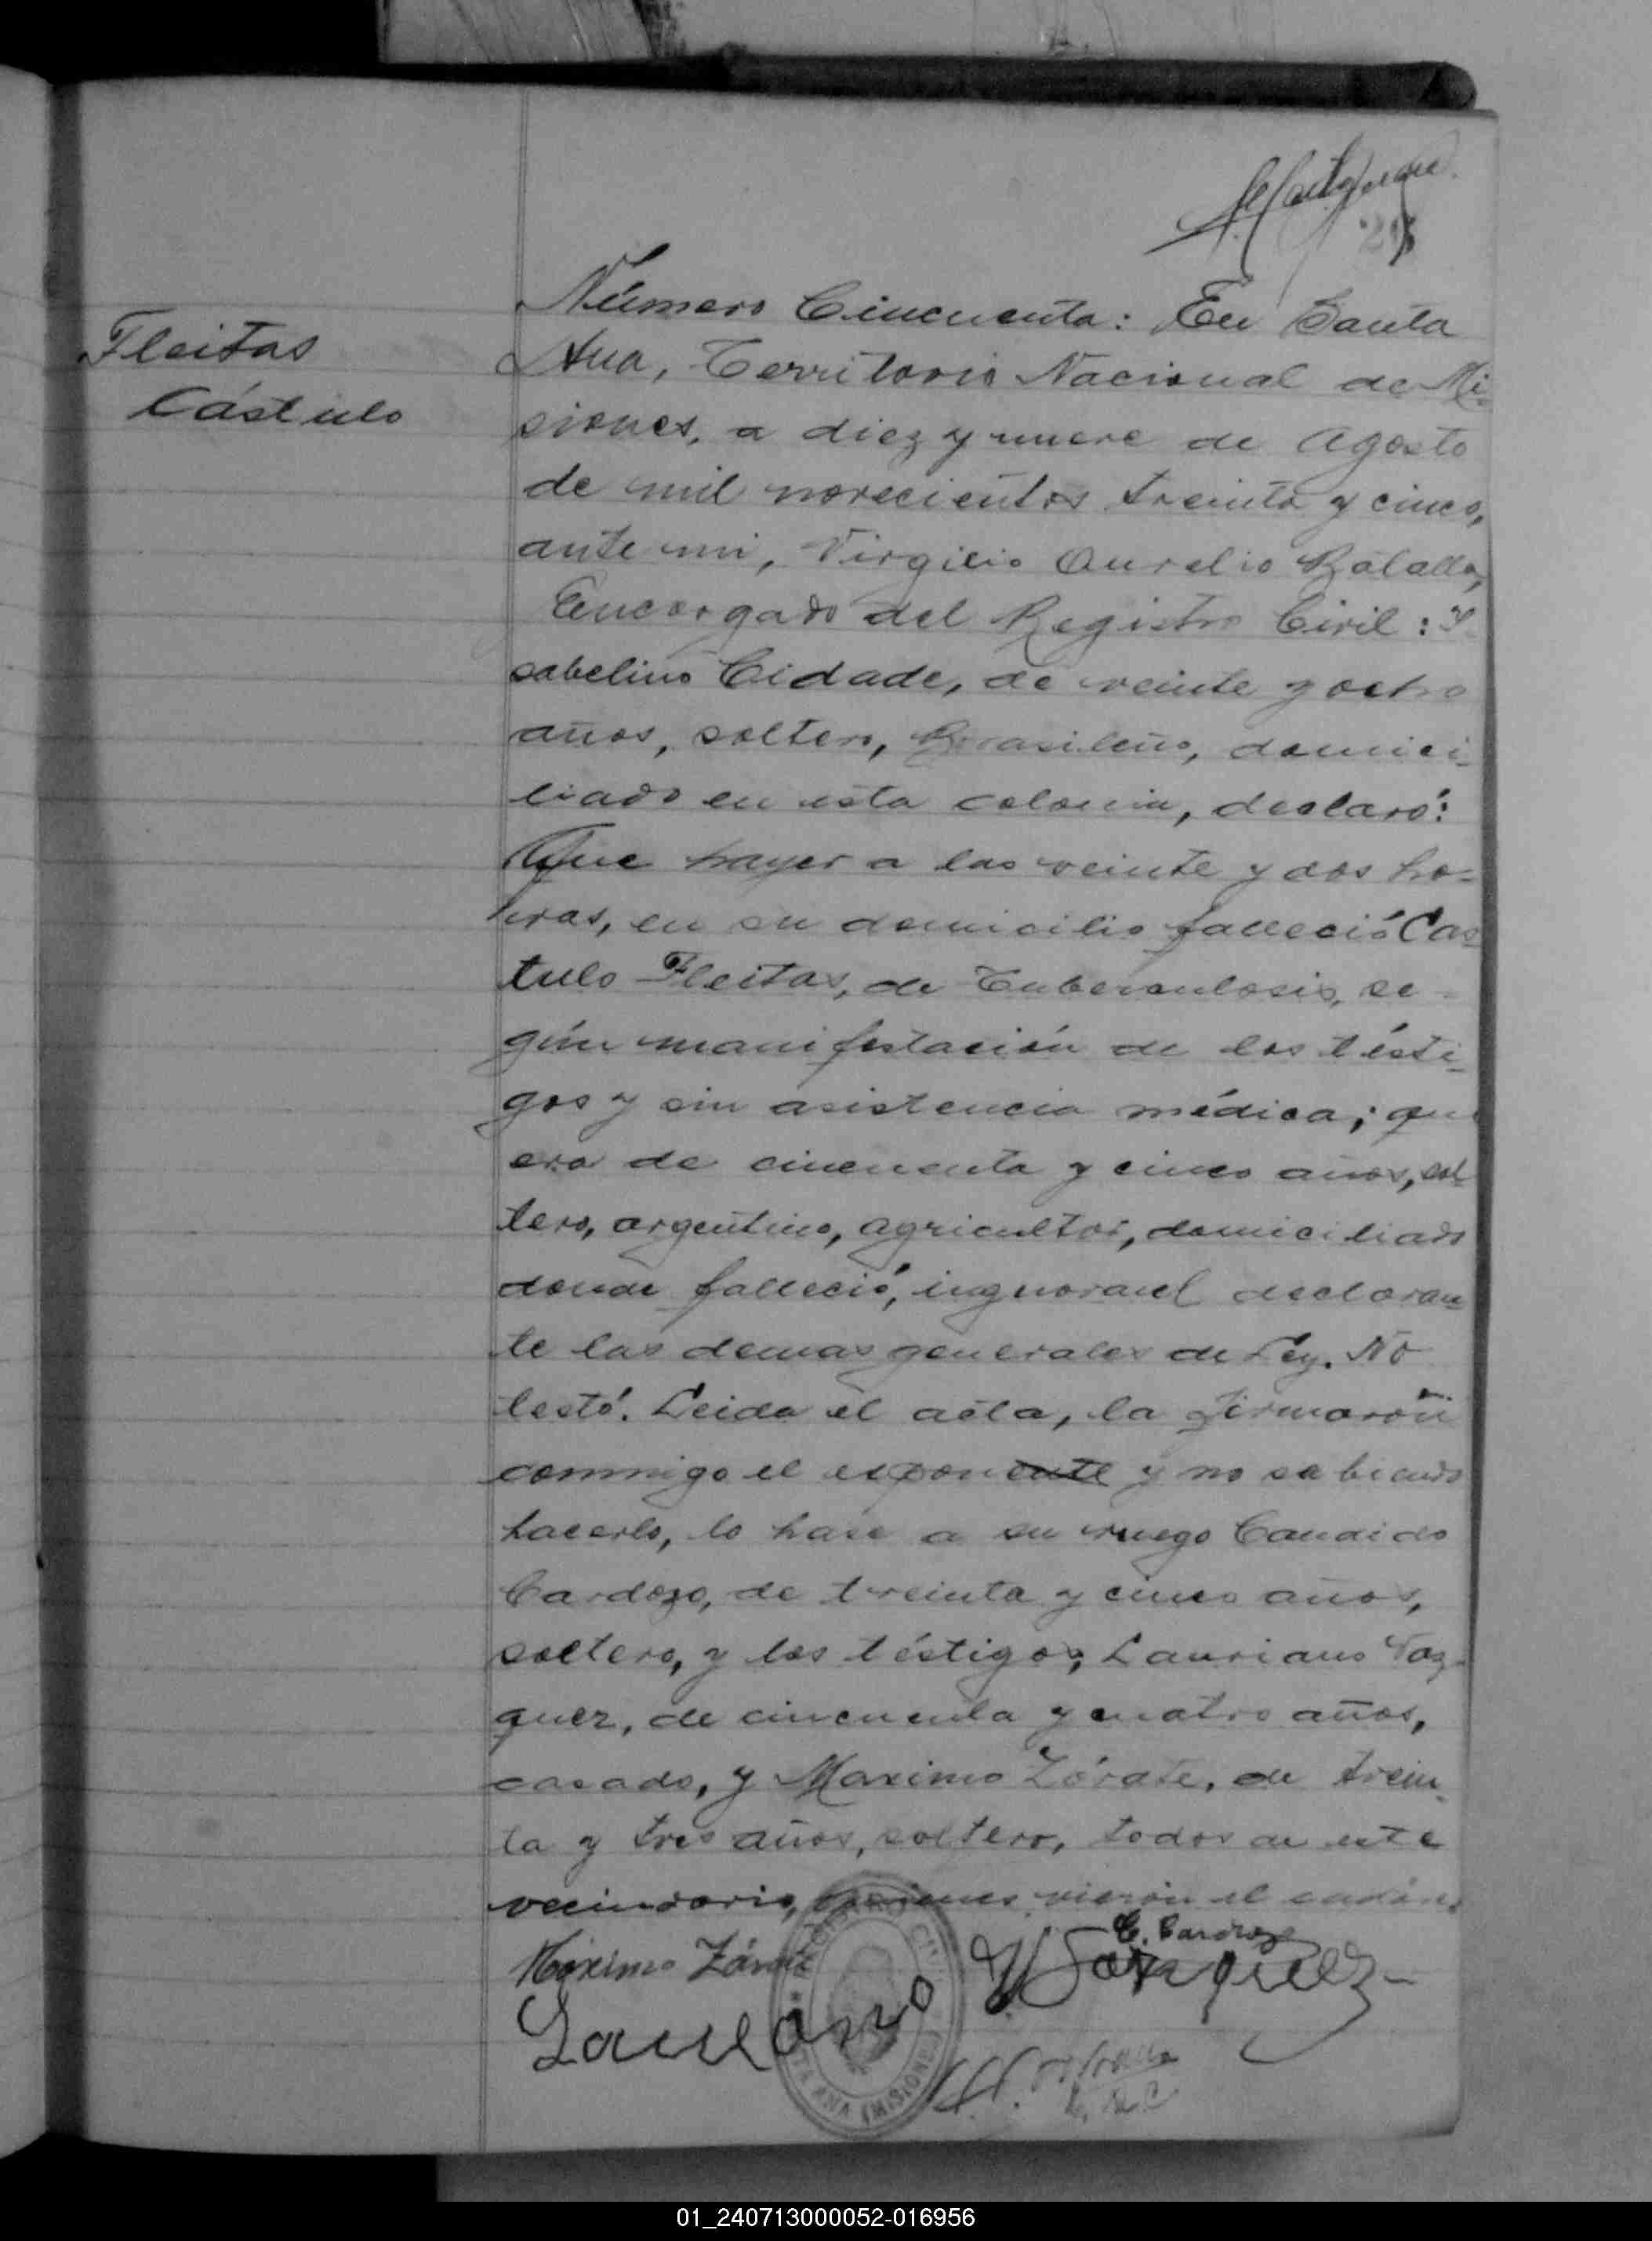 Fleitas
Cástulo
Número Cincuenta: En Santa
Ana, Territorio Nacional de Mi-
siones, a diez y nueve de Agosto
de mil novecientos treinta y cinco,
ante mi, Virgilio Aurelio
Encargado del Registro Civil: Y-
sabelino Cidade, de veinte y ocho
años, soltero, Brasileño, domici-
liado en esta colonia, declaró:
Que hayer a las veinte y dos ho-
hras, en su domicilio falleció Cas-
tulo Fleitas, de Tuberculosis, se-
gún manifestación de los tésti-
gos y sin asistencia médica; que
era de cincuenta y cinco años, sol-
tero, argentino, agricultor, domiciliado
donde falleció, ingnorand el declaran-
te las demas generales de Ley. No
testó. Leida el acta, la firmarón
commigo el exponente y no sabiendo
hacerlo, lo hase a su ruego Candido
Cardozo, de treinta y cinco años,
soltero, y los téstigos, Lauriano Vaz-
quez, de cincuenta y cuatro años,
casado, y Maximo Zárate, de trein-
ta y tres años, soltero, todos de este
vecindario, quienes vierón el cadáv.
C. Cardozo
Máximo Zárate
Vasquez
Laureano
REGISTRO CIVIL
STA ANA (MISIONES)
01_240713000052-016956